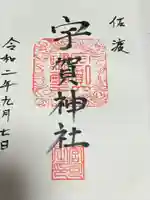 佐渡
宇賀神社
令和二年九月七日